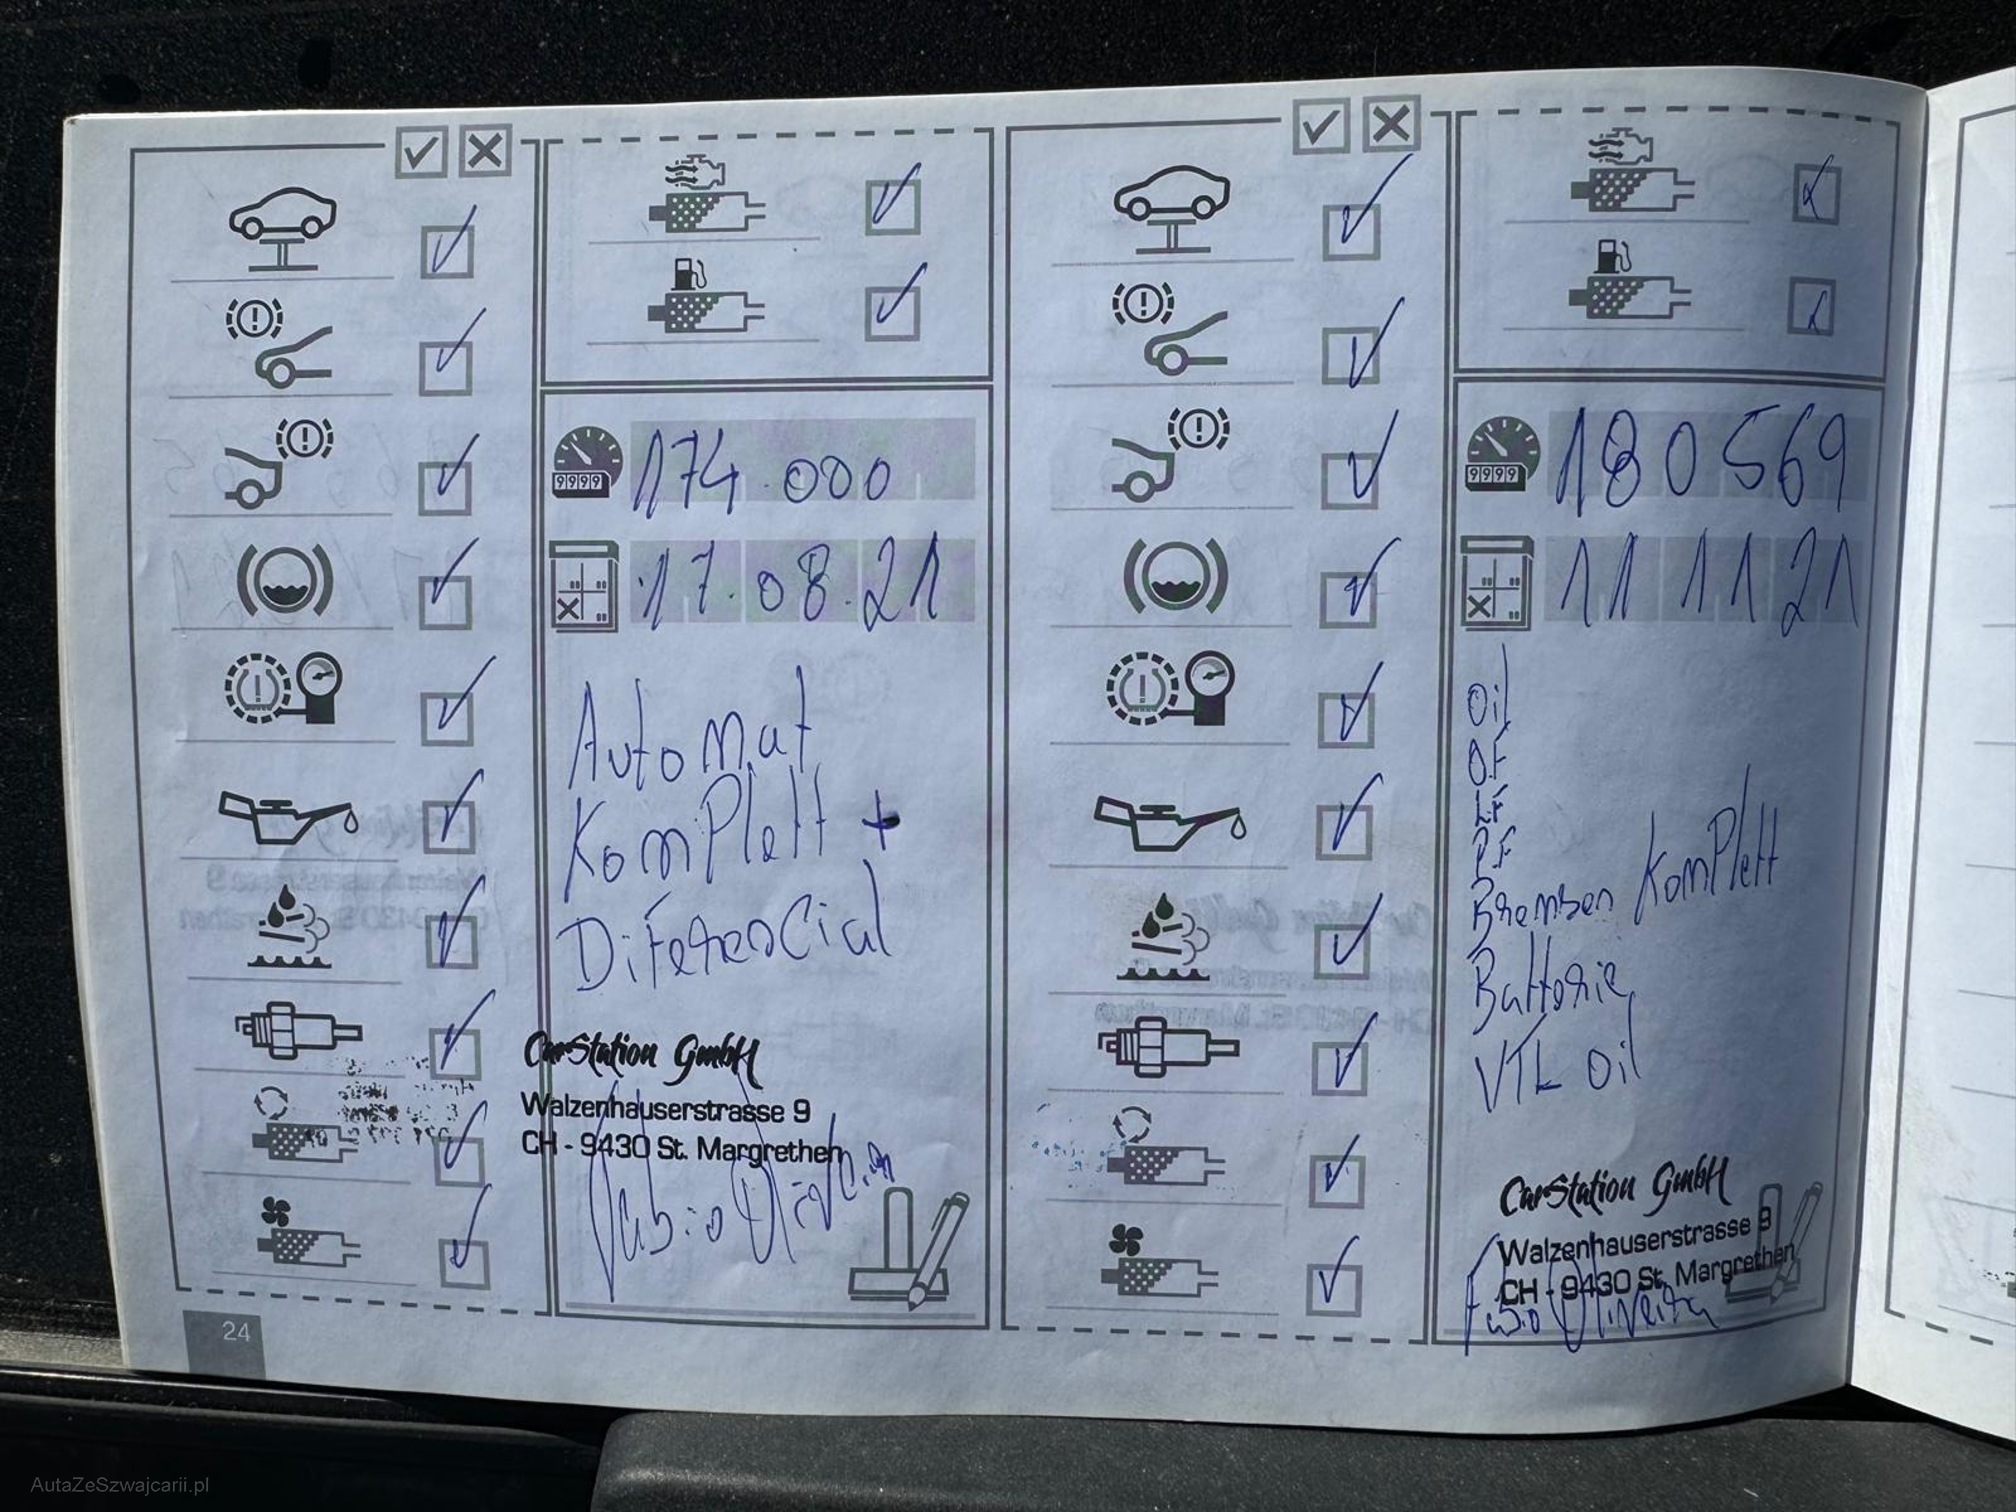 174.000
17.08.21
Automat
KomPlett +
DiferenCial
CarStation GmbH
Walzenhauserstrasse 9
CH - 9430 St. Margrethen
24
180569
11 11 21
Oil
O.F
L.F
P.F
Bremsen KomPlett
Batterie
VTL Oil
CarStation GmbH
Walzenhauserstrasse 9
CH - 9430 St. Margrethen
Fabio Oliveira
AutaZeSzwajcarii.pl